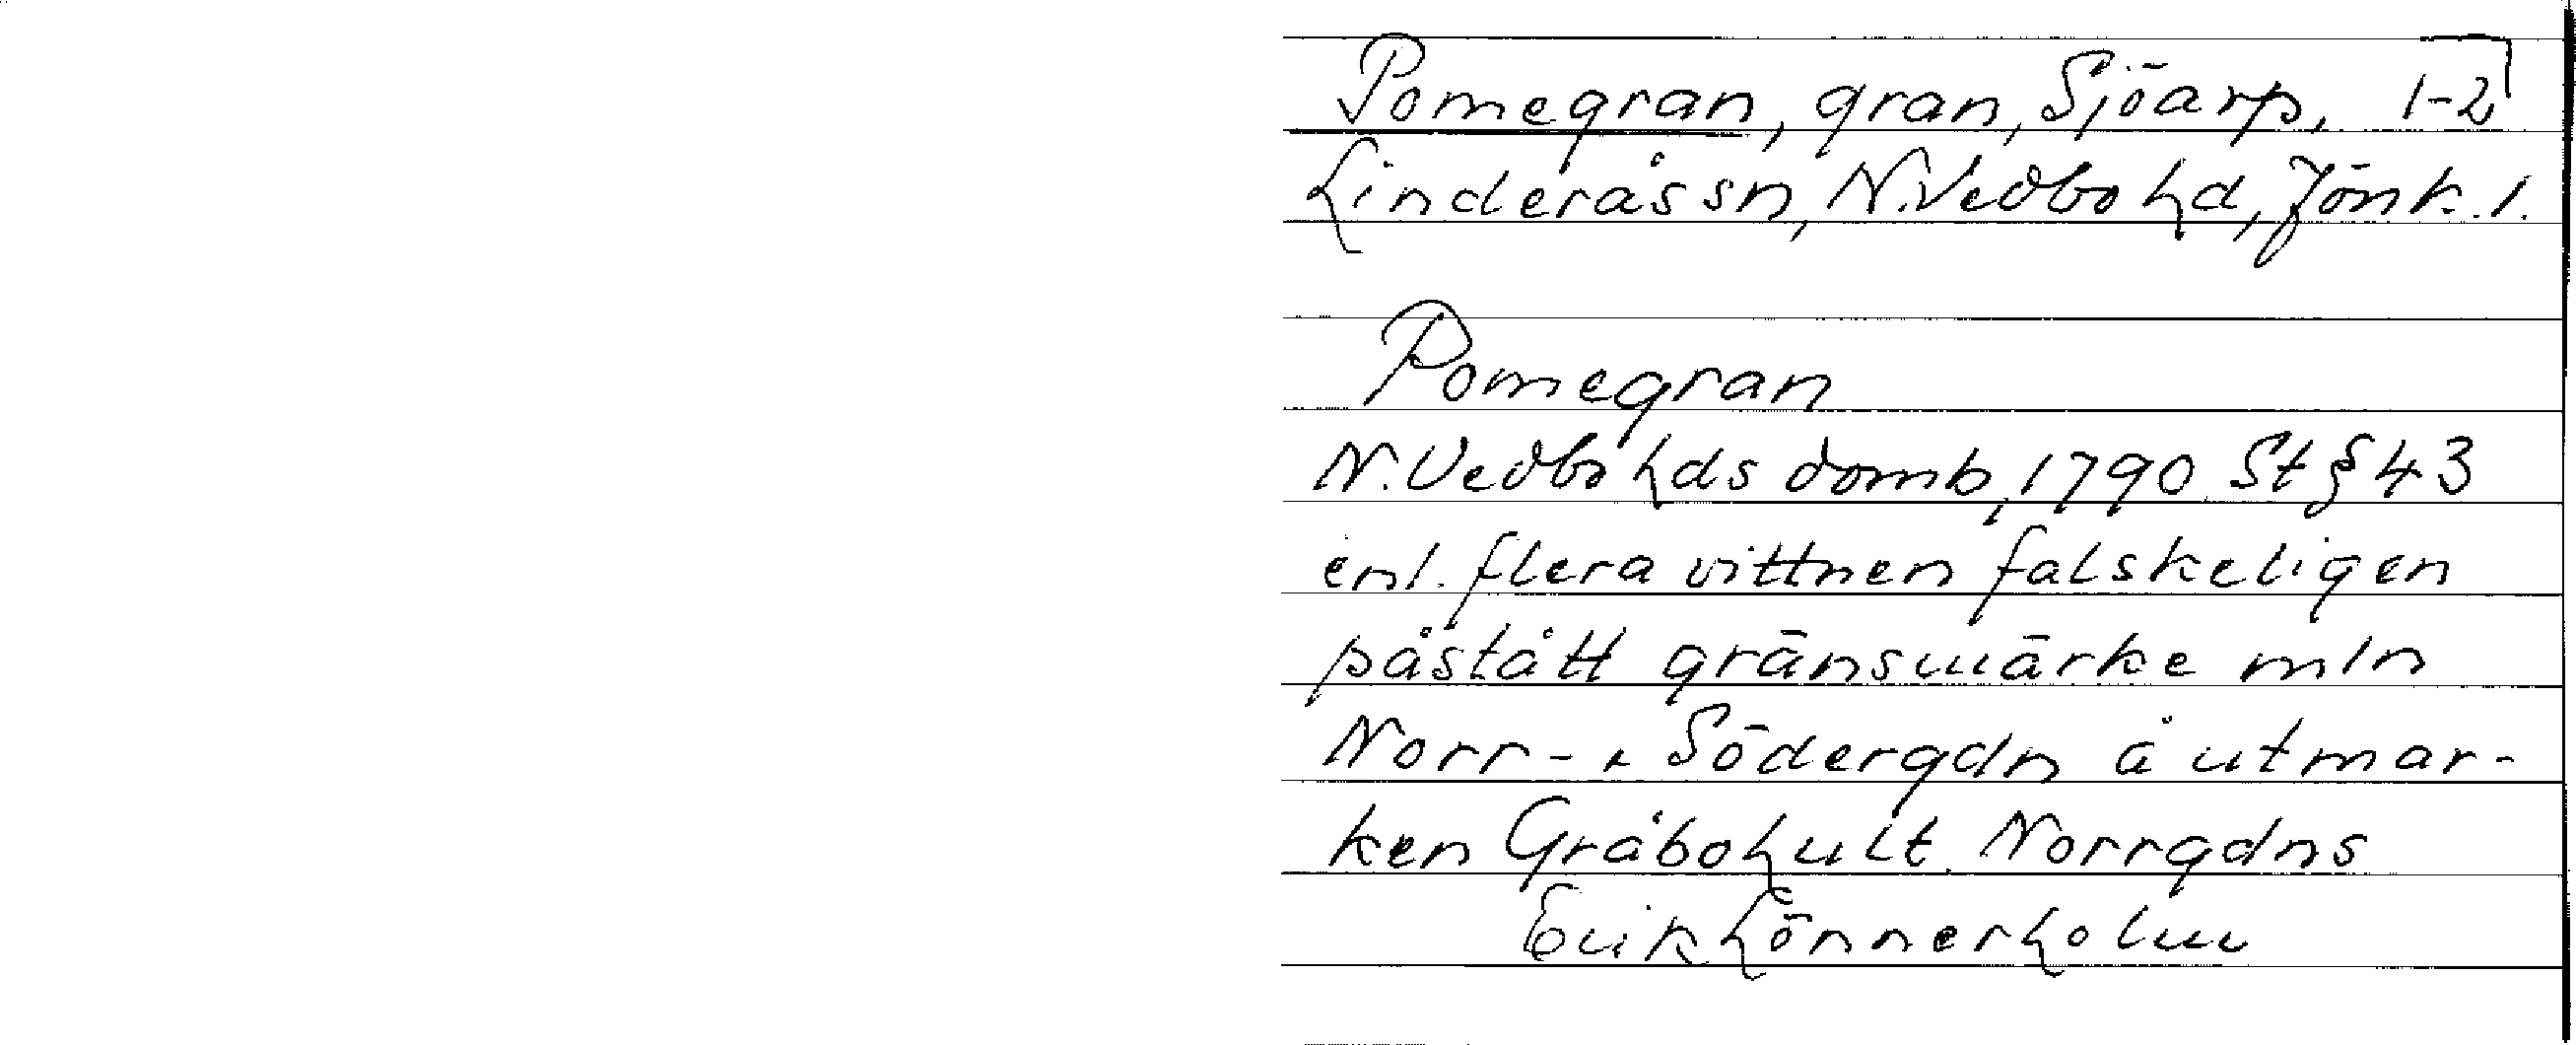 Pomegran, gran, Sjöarp, 1-2
Linderås sn, N. Vedbo hd, Jönk. l.
Pomegran
N. Vedbo hds domb, 1790 St § 43
enl. flera vittnen falskeligen
påstått gränsmärke mln
Norr- & Södergdn å utmar-
ken Gråbohult. Norrgdns
Erik Lönnerholm